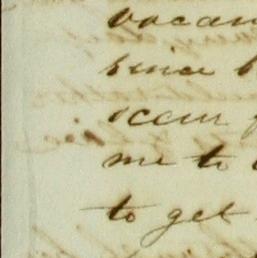 vacan
since
occur
me to
to get